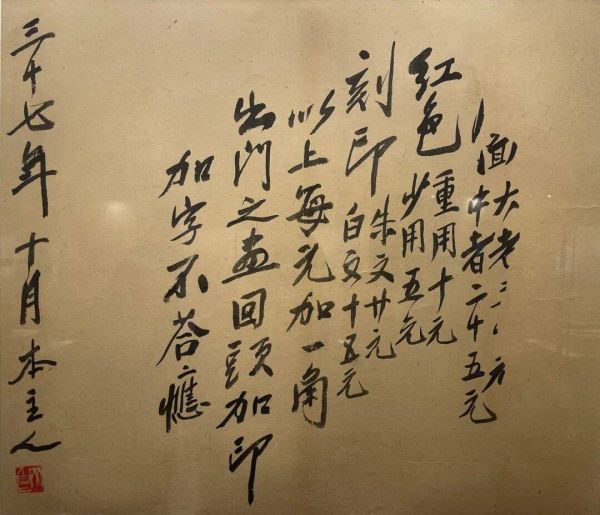 面大者
中者二十五元
红色
重用十元
少用五元
刻印
朱文廿元
白文十五元
以上每元加一角
出門之畫回頭加印
加字不荅應
三十七年十月本主人